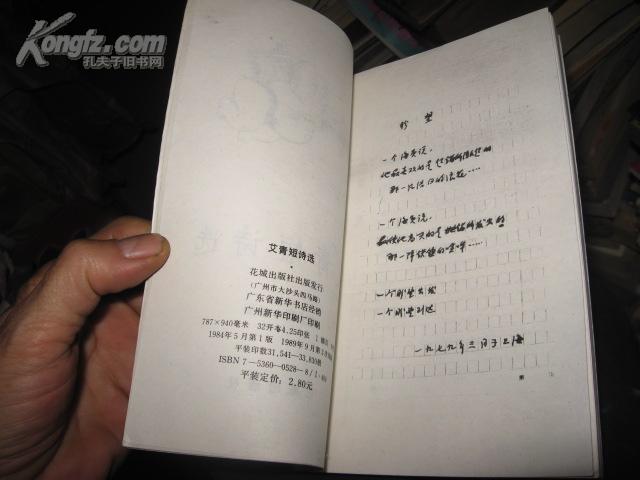 Kongfz.com
孔夫子旧书网
艾青短诗选
花城出版社出版发行
(广州市大沙头四马路)
广东省新华书店经销
广州新华印刷厂印刷
787×940毫米 32开本4.25印张 1插页
1984年5月第1版 1989年9月第
平装印数31,541—33,820册
ISBN 7—5360—0528—8/I
平装定价:2.80元
盼望
一个海员说,
他最喜欢的是起锚所激起的
那一片洁白的浪花……
一个海员说,
最使他高兴的是抛锚所发出的
那一阵铁链的喧哗……
一个盼望出发
一个盼望到达
一九七九年三月于上海
第